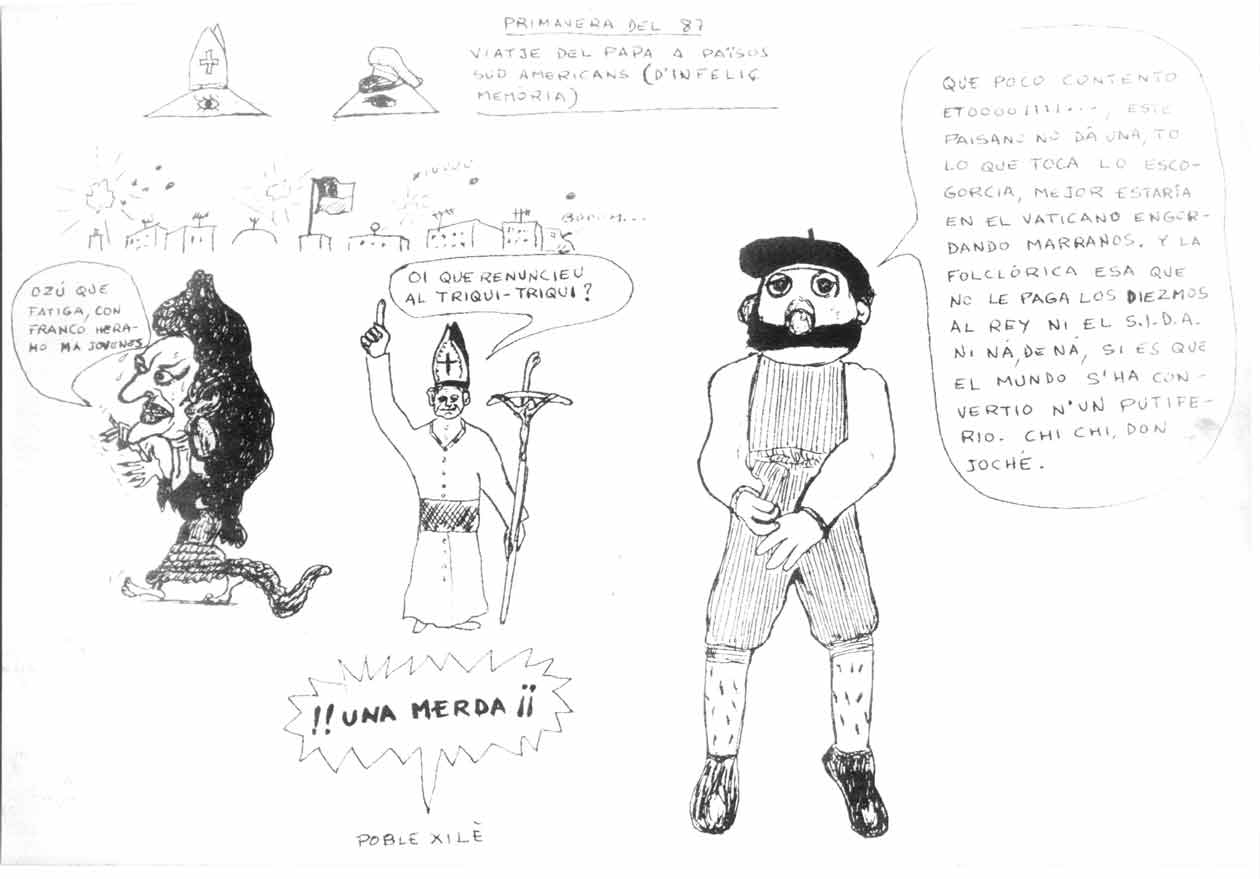 PRIMAVERA DEL 87
VIATJE DEL PAPA A PAÏSOS
SUD AMERICANS (D'INFELIÇ
MEMÒRIA)
BOOUM...
OZÚ QUE
FATIGA, CON
FRANCO HERA-
MO MA JOVENES
OI QUE RENUNCIEU
AL TRIQUI-TRIQUI?
QUE POCO CONTENTO
ETOOOO!!!!..., ESTE
PAISANO NO DÁ UNA, TO
LO QUE TOCA LO ESCO-
GORCIA, MEJOR ESTARÍA
EN EL VATICANO ENGOR-
DANDO MARRANOS. Y LA
FOLCLÓRICA ESA QUE
NO LE PAGA LOS DIEZMOS
AL REY NI EL S.I.D.A.
NI NÁ, DE NÁ, SI ES QUE
EL MUNDO S'HA CON-
VERTIO N'UN PUTIFE-
RIO. CHI CHI, DON
JOCHÉ.
!! UNA MERDA ¡¡
POBLE XILÈ